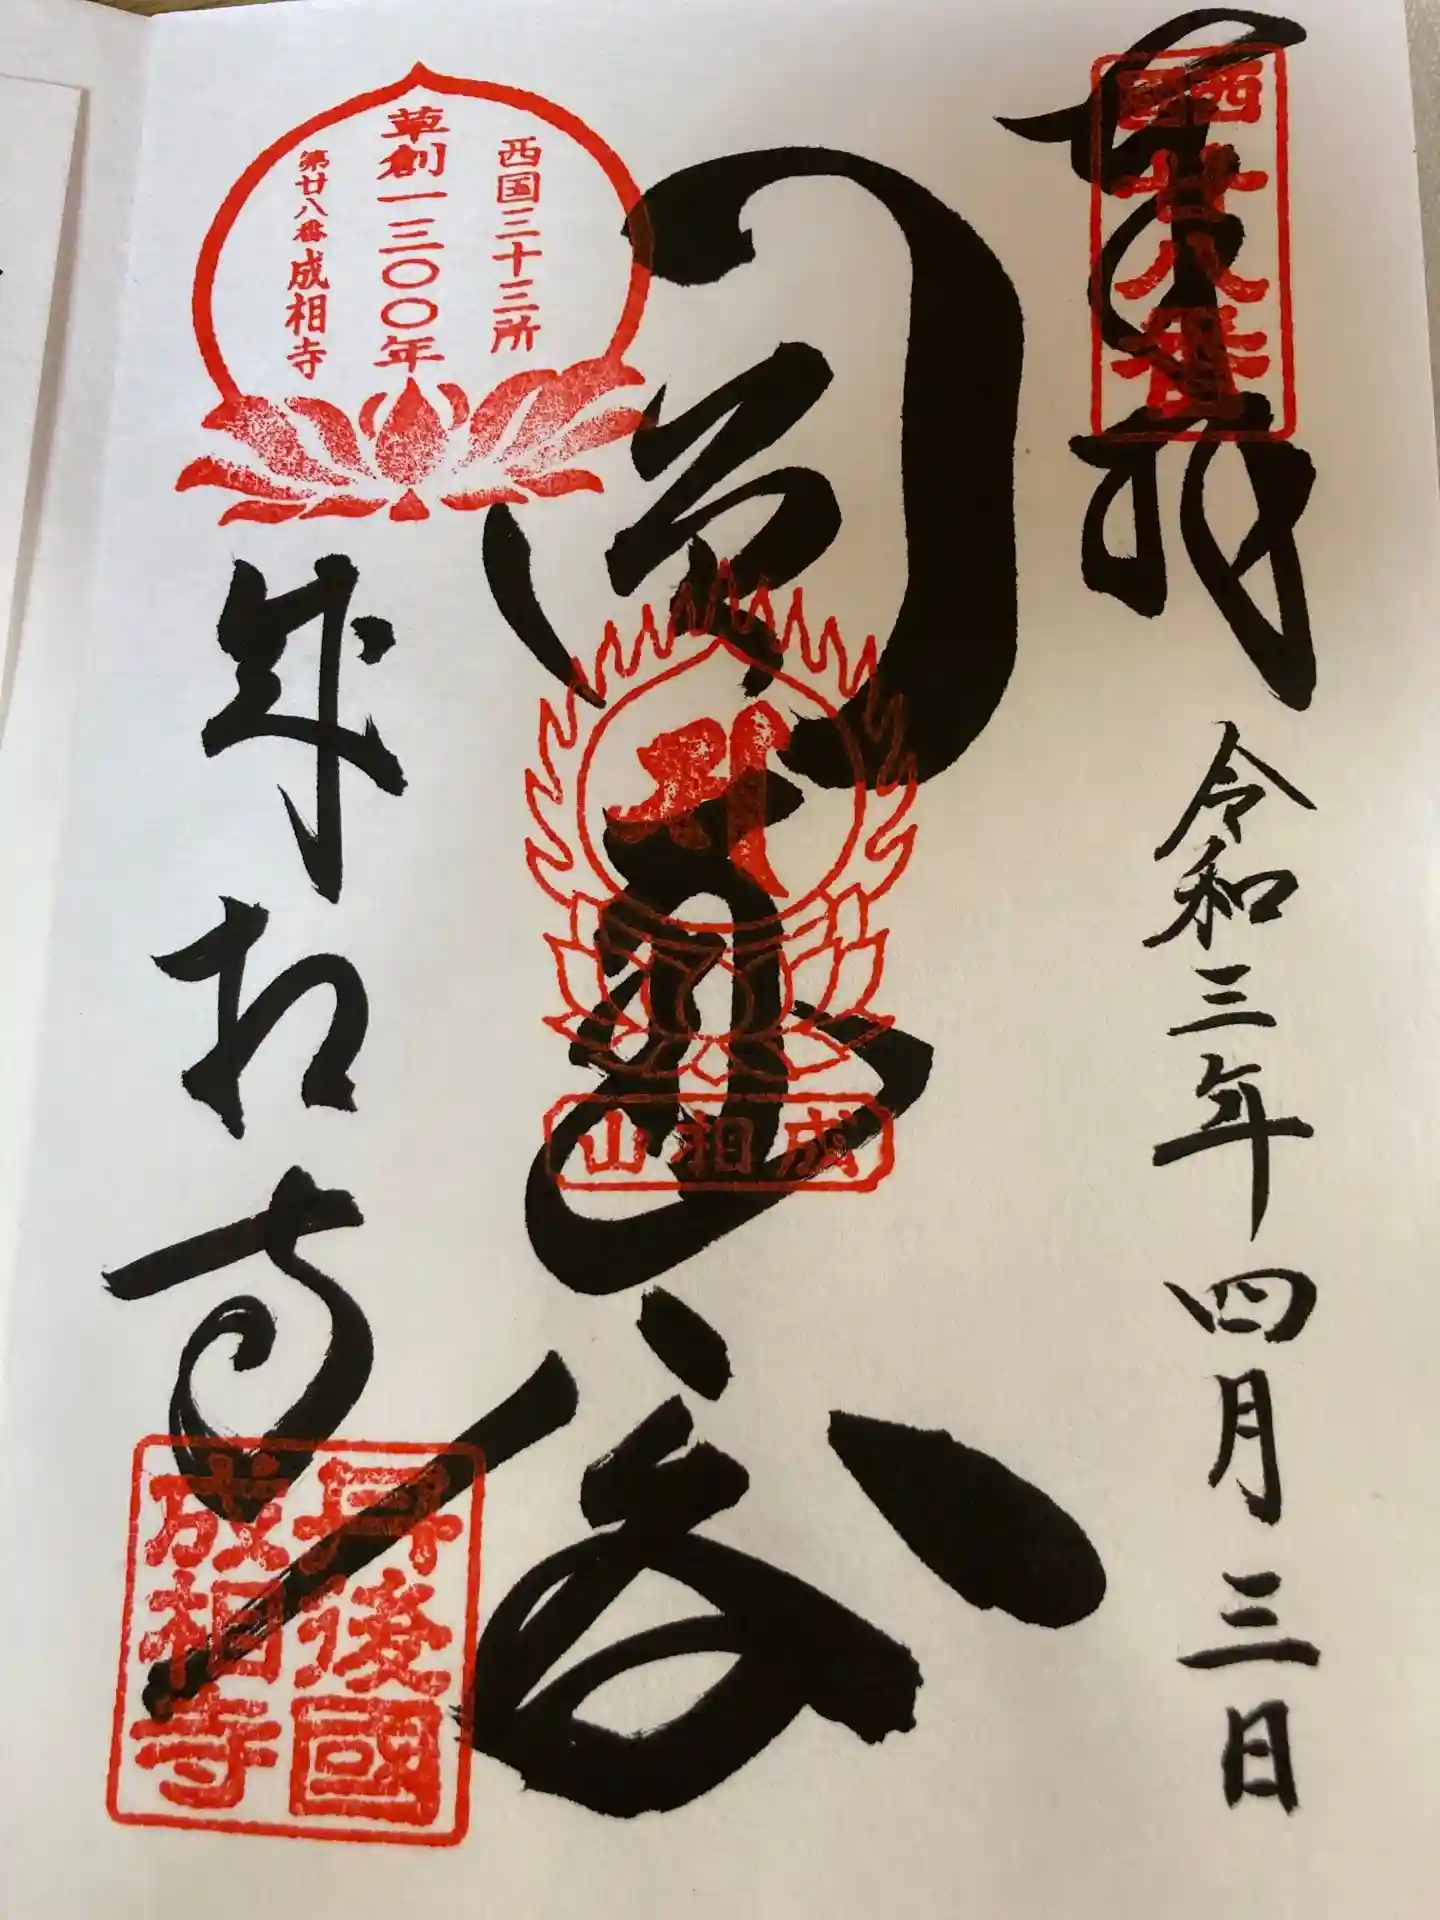 奉拝
西國廿八番
令和三年四月三日
圓通閣
成相山
西国三十三所
草創一三〇〇年
第廿八番成相寺
成相寺
丹後國
成相寺